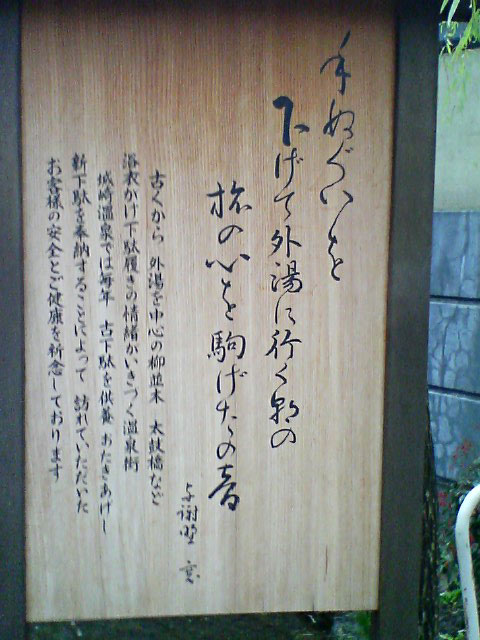 手ぬぐいを
下げて外湯に行く朝の
旅の心を駒げたの音
与謝野 寛
古くから 外湯を中心の柳並木 太鼓橋など
浴衣かけ下駄履きの情緒がいきつく温泉街
城崎温泉では毎年 古下駄を供養 おたきあげし
新下駄を奉納することによって 訪れていただいた
お客様の安全とご健康を祈念しております